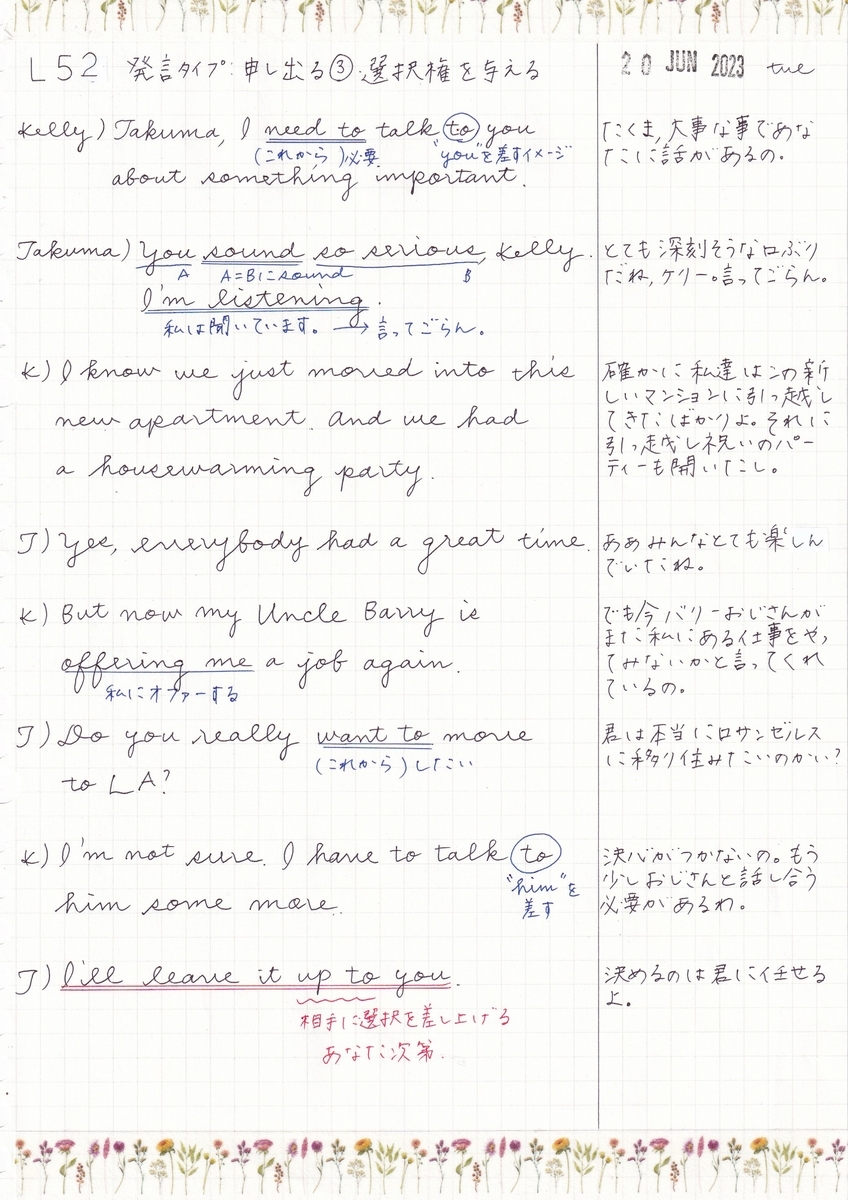 L52 発言タイプ:申し出る③:選択権を与える
20 JUN 2023 tue
Kelly) Takuma, I need to talk to you
(これから)必要 "you"を差すイメージ
about something important.
たくま,大事な事であな
たに話があるの。
Takuma) You sound so serious, Kelly.
A A=Bにsound B
I'm listening.
私は聞いています。→言ってごらん。
とても深刻そうな口ぶり
だね,ケリー。言ってごらん。
K) I know we just moved into this
new apartment. And we had
a housewarming party.
確かに私達はこの新
しいマンションに引っ越し
てきたばかりよ。それに
引っ越し祝いのパー
ティーも開いたし。
T) Yes, everybody had a great time.
ああみんなとても楽しん
でいたね。
K) But now my Uncle Barry is
offering me a job again.
私にオファーする
でも今バリーおじさんが
また私にある仕事をやっ
てみないかと言ってくれ
ているの。
T) Do you really want to move
(これから)したい
to LA?
君は本当にロサンゼルス
に移り住みたいのかい?
K) I'm not sure. I have to talk to
"him"を
差す
him some more.
決心がつかないの。もう
少しおじさんと話し合う
必要があるわ。
T) I'll leave it up to you.
相手に選択を差し上げる
あなた次第.
決めるのは君に任せる
よ。